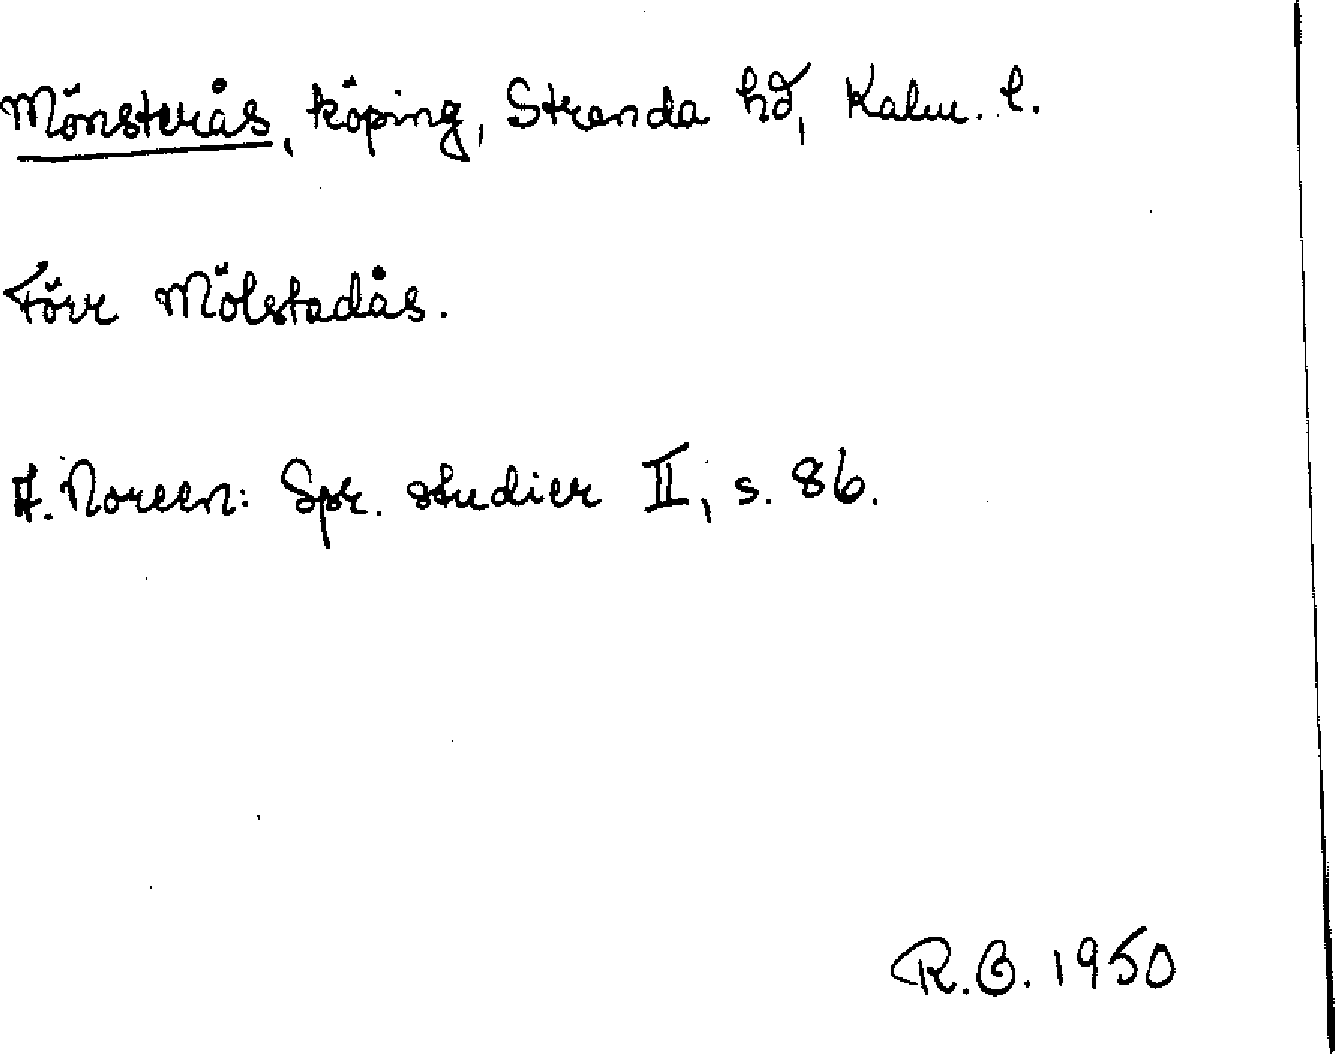 Mönsterås, köping, Stranda hd, Kalm. l.
Förr Mölstadås.
A. Noreen: Spr. studier II, s. 86.
R.B. 1950